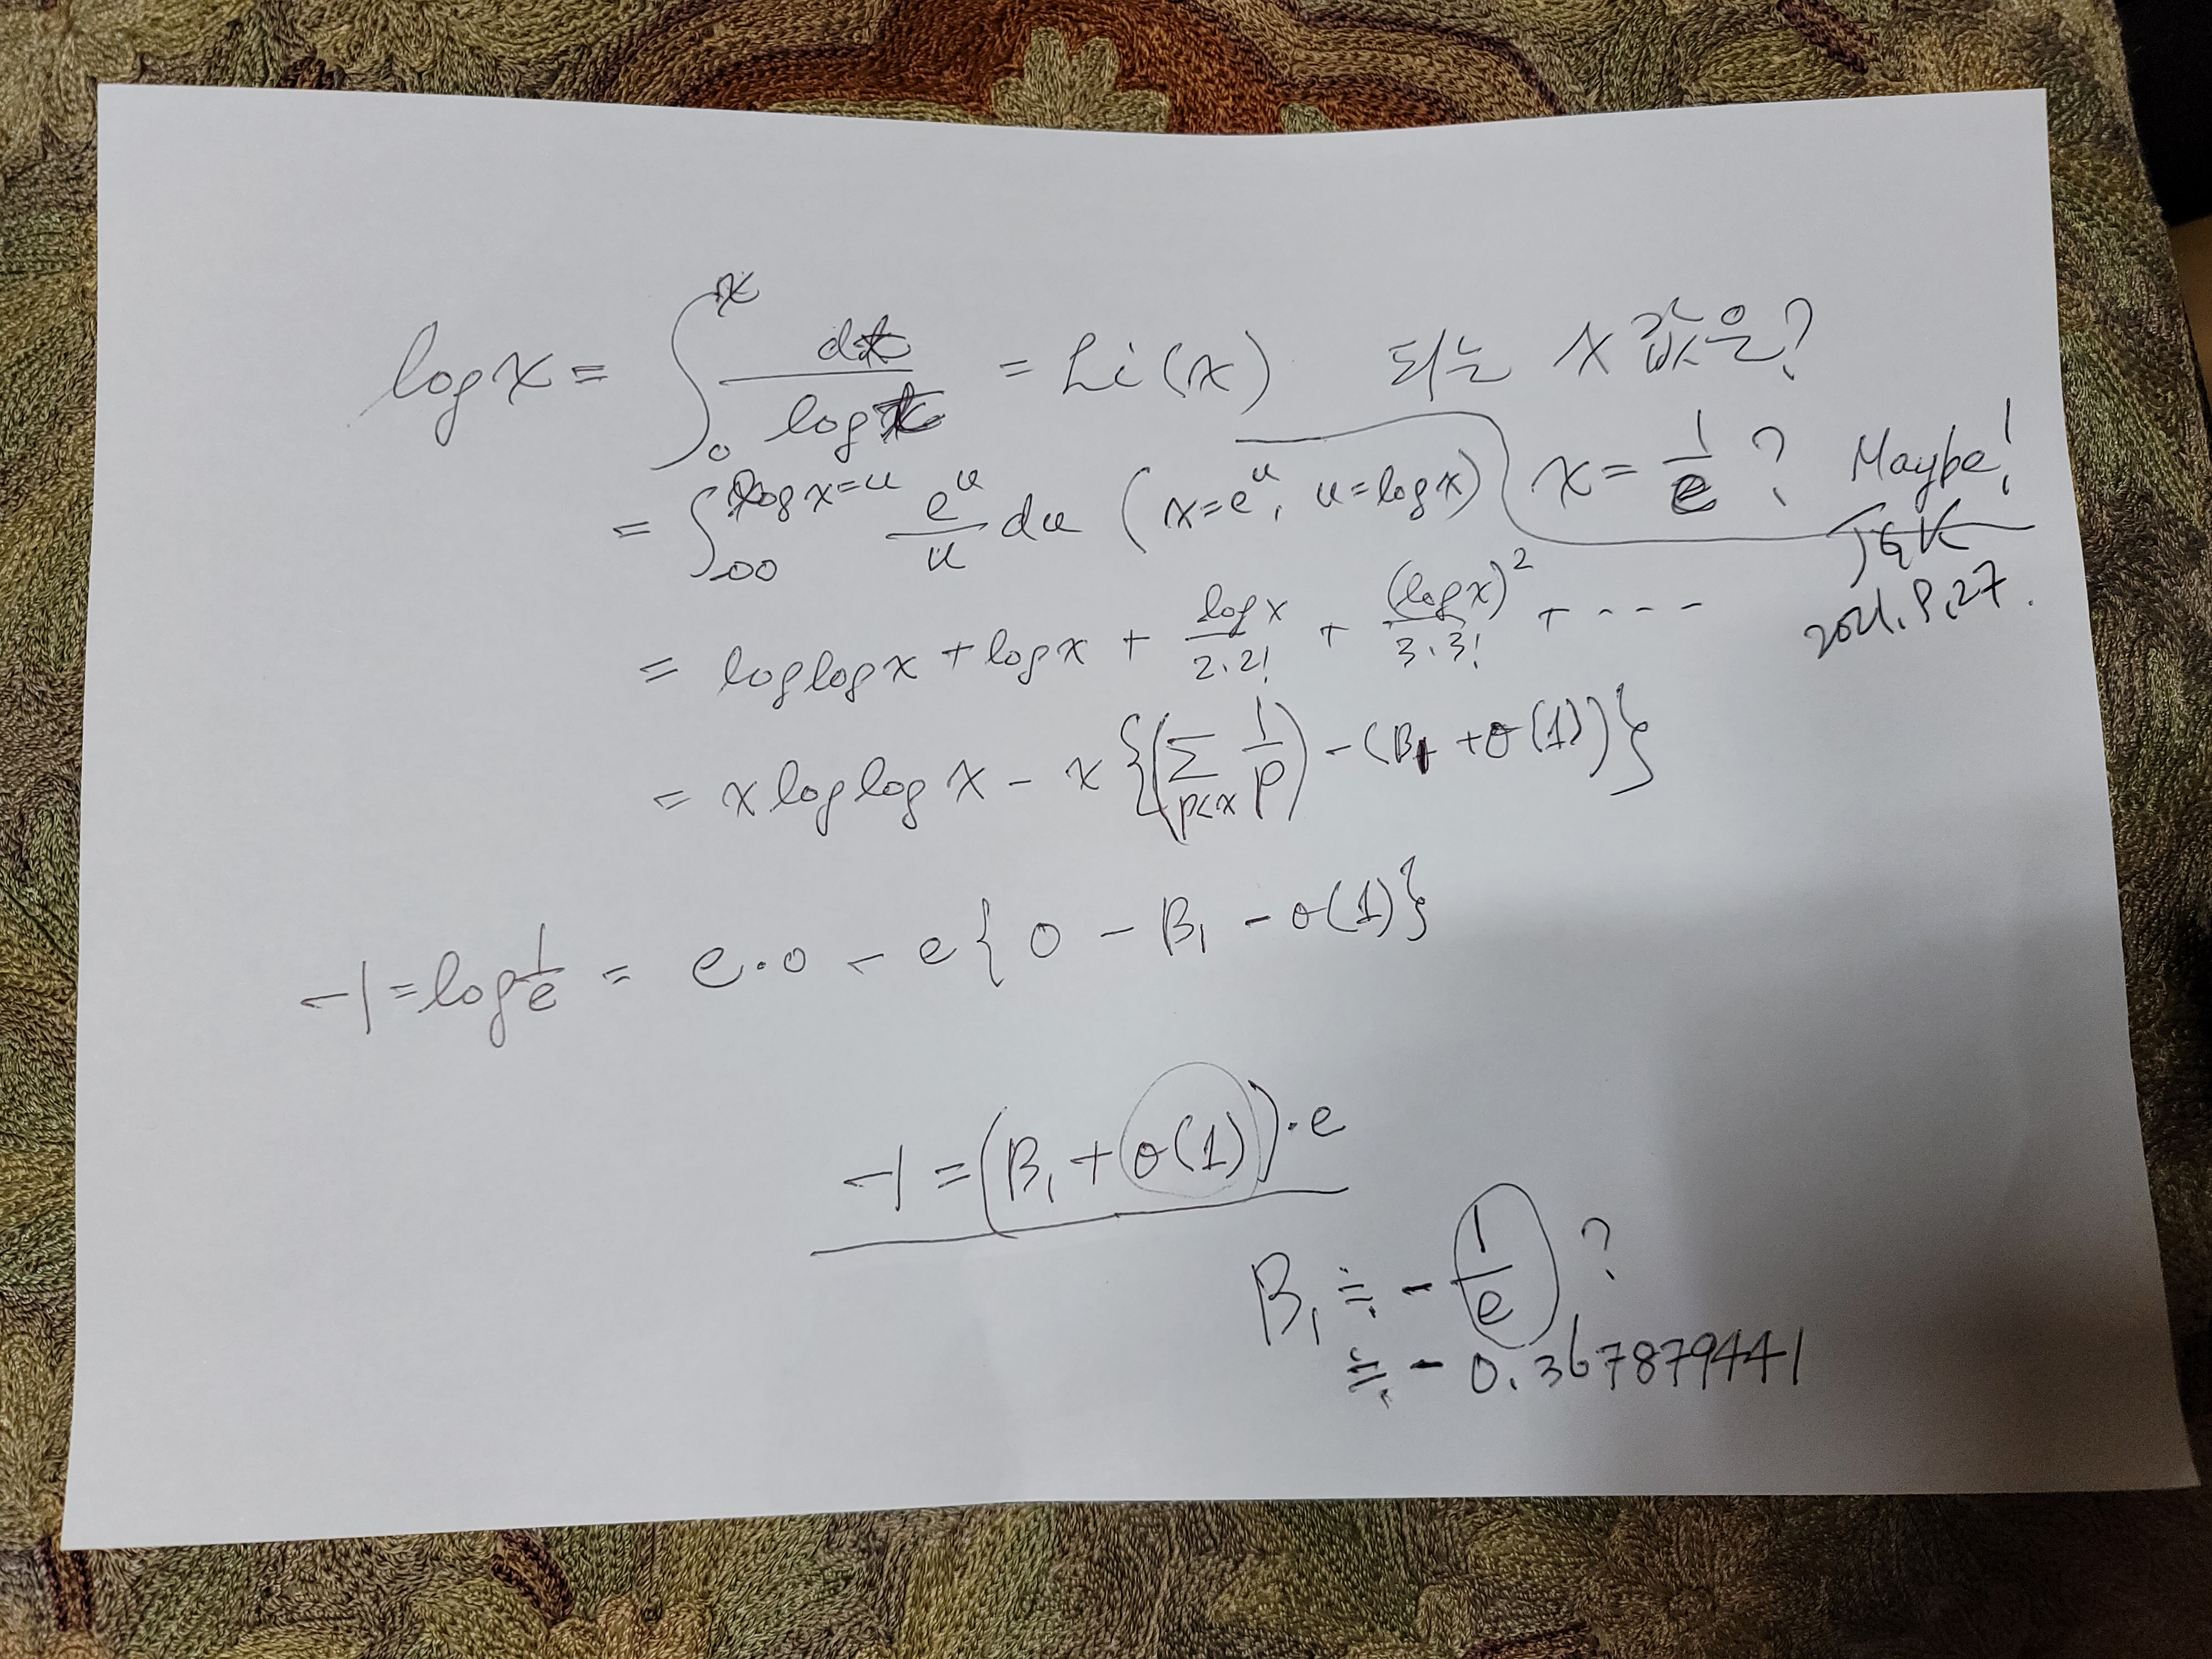 log x = ∫₀ˣ dt / log t = Li(x) 되는 x값은?
x = 1/e ? Maybe!
= ∫_{-∞}^{log x=u} e^u / u du (x=e^u, u=log x)
JGK
2021. 9. 27.
= log log x + log x + log x / 2·2! + (log x)² / 3·3! + ----
= x log log x - x {(∑_{p<x} 1/p) - (B₁ + o(1))}
-1 = log 1/e = e·0 - e{0 - B₁ - o(1)}
-1 = (B₁ + o(1))·e
B₁ ≒ - 1/e ?
≒ - 0.367879441